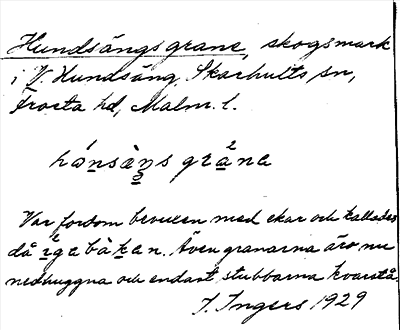 Hundsängsgrane, skogsmark
i V. Hundsäng, Skarhults sn,
Frosta hd, Malm. l.
hónsàŋs grăna
Var fordom bevuxen med ekar och kallades
då ĕgabàkan. Även granarna äro nu
nedhuggna och endast stubbarna kvarstå.
I. Ingers 1929